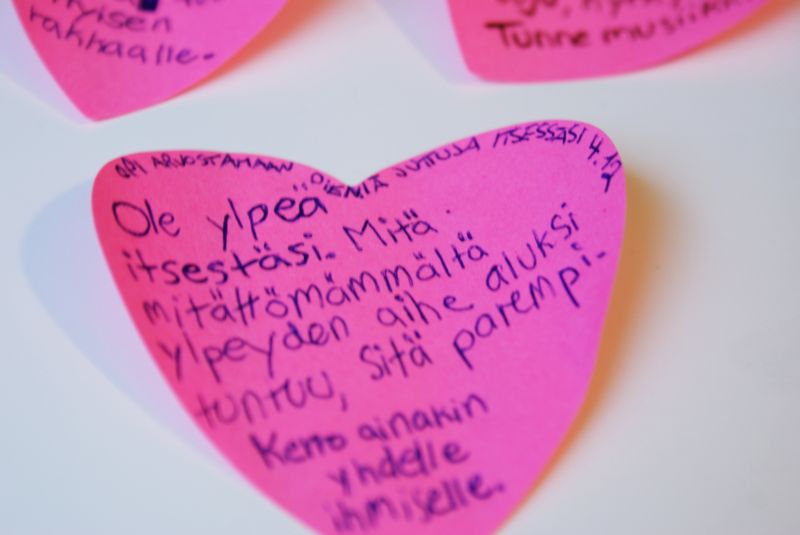 rakkaalle.
Tunne
OPI ARVOSTAMAAN PIENIÄ JUTTUJA ITSESSÄSI 4.12
Ole ylpeä
itsestäsi. Mitä
mitättömämmältä
ylpeyden aihe aluksi
tuntuu, sitä parempi.
Kerro ainakin
yhdelle
ihmiselle.